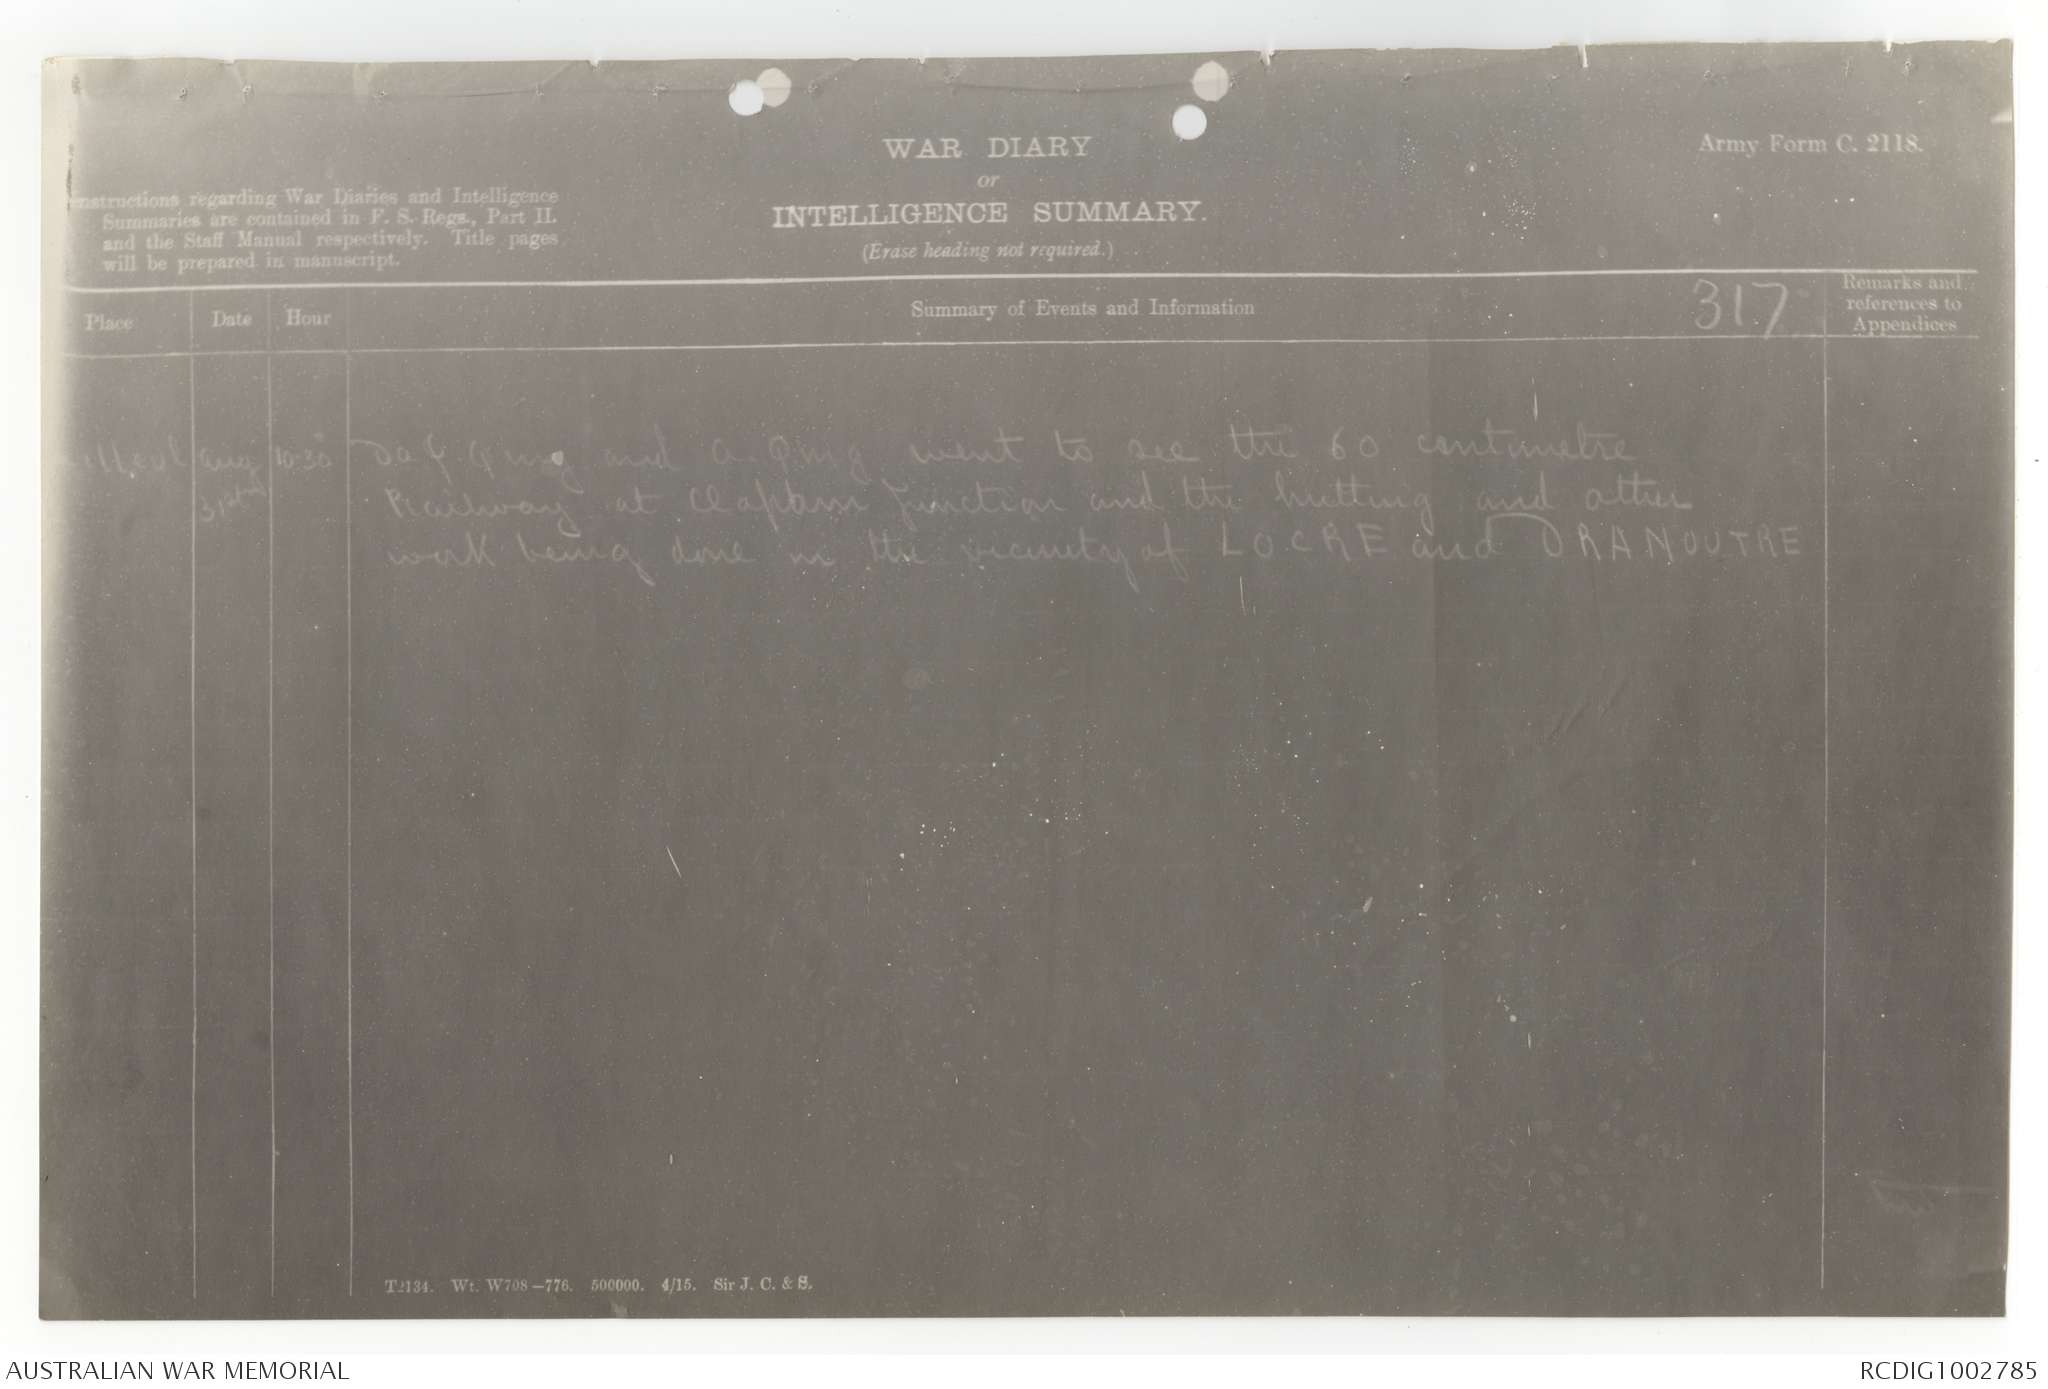 WAR DIARY
or
INTELLIGENCE SUMMARY.
(Erase heading not required.)
Army Form C. 2118.
Instructions regarding War Diaries and Intelligence
Summaries are contained in F. S. Regs., Part II.
and the Staff Manual respectively. Title pages
will be prepared in manuscript.
Place
Date
Hour
Summary of Events and Information
317
Remarks and
references to
Appendices
Aug
31st
10.30
and went to see the 60 centimetre
Railway at Clapham Junction and the hutting and other
work being done in the vicinity of LOCRE and DRANOUTRE
T2134. Wt. W708—776. 500000. 4/15. Sir J. C. & S.
AUSTRALIAN WAR MEMORIAL
RCDIG1002785